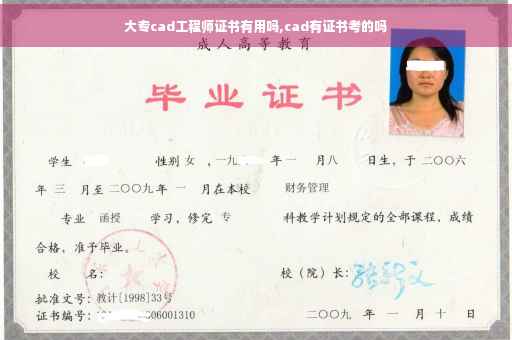 大专cad工程师证书有用吗,cad有证书考的吗
成人高等教育
毕业证书
学生 性别 女 ,一九 年一 月八 日生,于二〇〇六
年 三 月至二〇〇九年 一 月在本校 财务管理
专业 函授 学习,修完 专 科教学计划规定的全部课程,成绩
合格,准予毕业。
校 名: 校(院)长:
批准文号:教计[1998]33号
证书编号: 06001310 二〇〇九 年 一 月 十 日